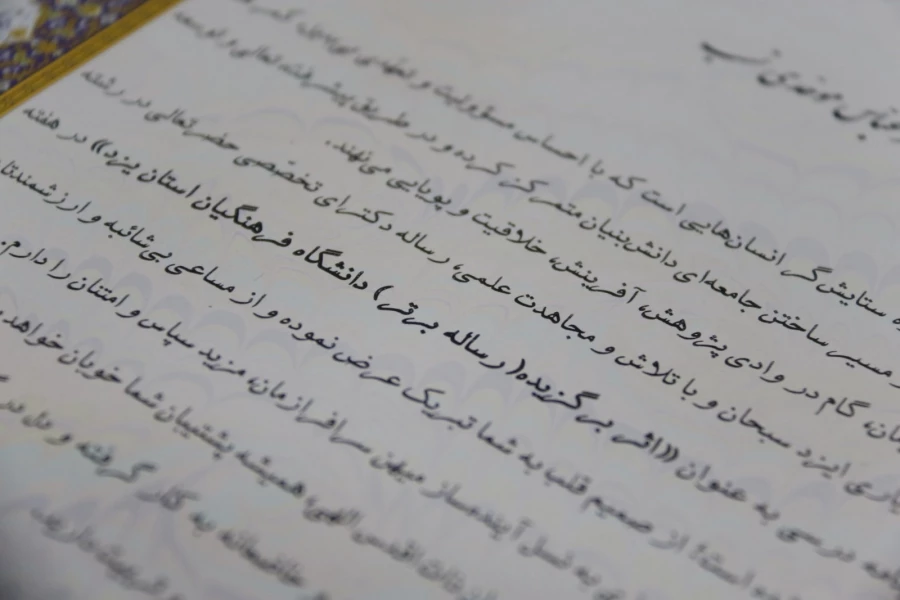 موحدی نسب
ستایش‌گر انسان‌هایی است که با احساس مسؤولیت و تعهدی
مسیر ساختن جامعه‌ای دانش‌بنیان متمرکز کرده و در طریق پیشرفت، تعالی و توسعه
گام در وادی پژوهش، آفرینش، خلاقیت و پویایی می‌نهند.
یاری ایزد سبحان و با تلاش و مجاهدت علمی، رساله دکترای تخصّصی حضرتعالی در رشته
درسی به عنوان «اثر برگزیده(رساله برتر) دانشگاه فرهنگیان استان یزد» در هفته
است؛ از صمیم قلب به شما تبریک عرض نموده و از مساعی بی‌شائبه و ارزشمندتان
به نسل آینده‌ساز میهن سرافرازمان، مزید سپاس و امتنان را دارم.
اقدس الهی، همیشه پشتیبان شما خوبان خواهد
به کار گرفته و دل در